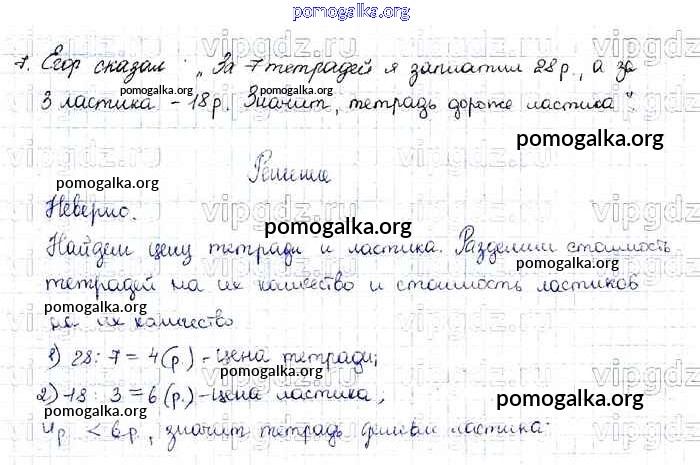 pomogalka.org
7. Егор сказал: „За 7 тетрадей я заплатил 28 р., а за
pomogalka.org pomogalka.org
3 ластика – 18 р. Значит, тетрадь дороже ластика".
pomogalka.org
Решение
pomogalka.org
Неверно.
pomogalka.org
Найдем цену тетради и ластика. Разделим стоимость
pomogalka.org
тетрадей на их количество и стоимость ластиков
pomogalka.org
на их количество
1) 28 : 7 = 4 (р.) – цена тетради;
pomogalka.org
2) 18 : 3 = 6 (р.) – цена ластика,
pomogalka.org
pomogalka.org
4 р. < 6 р., значит тетрадь дешевле ластика.
pomogalka.org